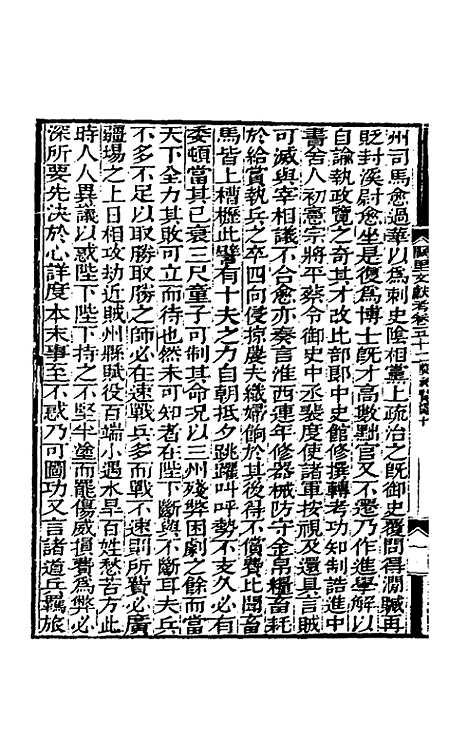 州司馬愈過華以爲刺史陰相黨上疏治之旣御史覆問得澗贓再
貶封溪尉愈坐是復爲博士旣才高數黜官又不遷乃作進學解以
自諭執政覽之奇其才改比部郎中史館修撰轉考功知制誥進中
書舍人初憲宗將平蔡令御史中丞裴度使諸軍按視及還具言賊
可滅與宰相議不合愈亦奏言淮西連年修器械防守金帛糧畜耗
於給賞執兵之卒四向侵掠農夫織婦餉於其後得不償費比聞畜
馬皆上槽櫪此譬有十夫之力自朝抵夕跳躍叫呼勢不支久必有
委頓當其已衰三尺童子可制其命况以三州殘弊困劇之餘而當
天下全力其敗可立而待也然未可知者在陛下斷與不斷耳夫兵
不多不足以取勝取勝之師必在速戰兵多而戰不速則所費必廣
疆場之上日相攻劫近賊州縣賦役百端小遇水旱百姓愁苦方此
時人人異議以惑陛下陛下持之不堅半塗而罷傷威損費爲弊必
深所要先決於心詳度本末事至不惑乃可圖功又言諸道兵羈旅
闕里文獻考卷五十一